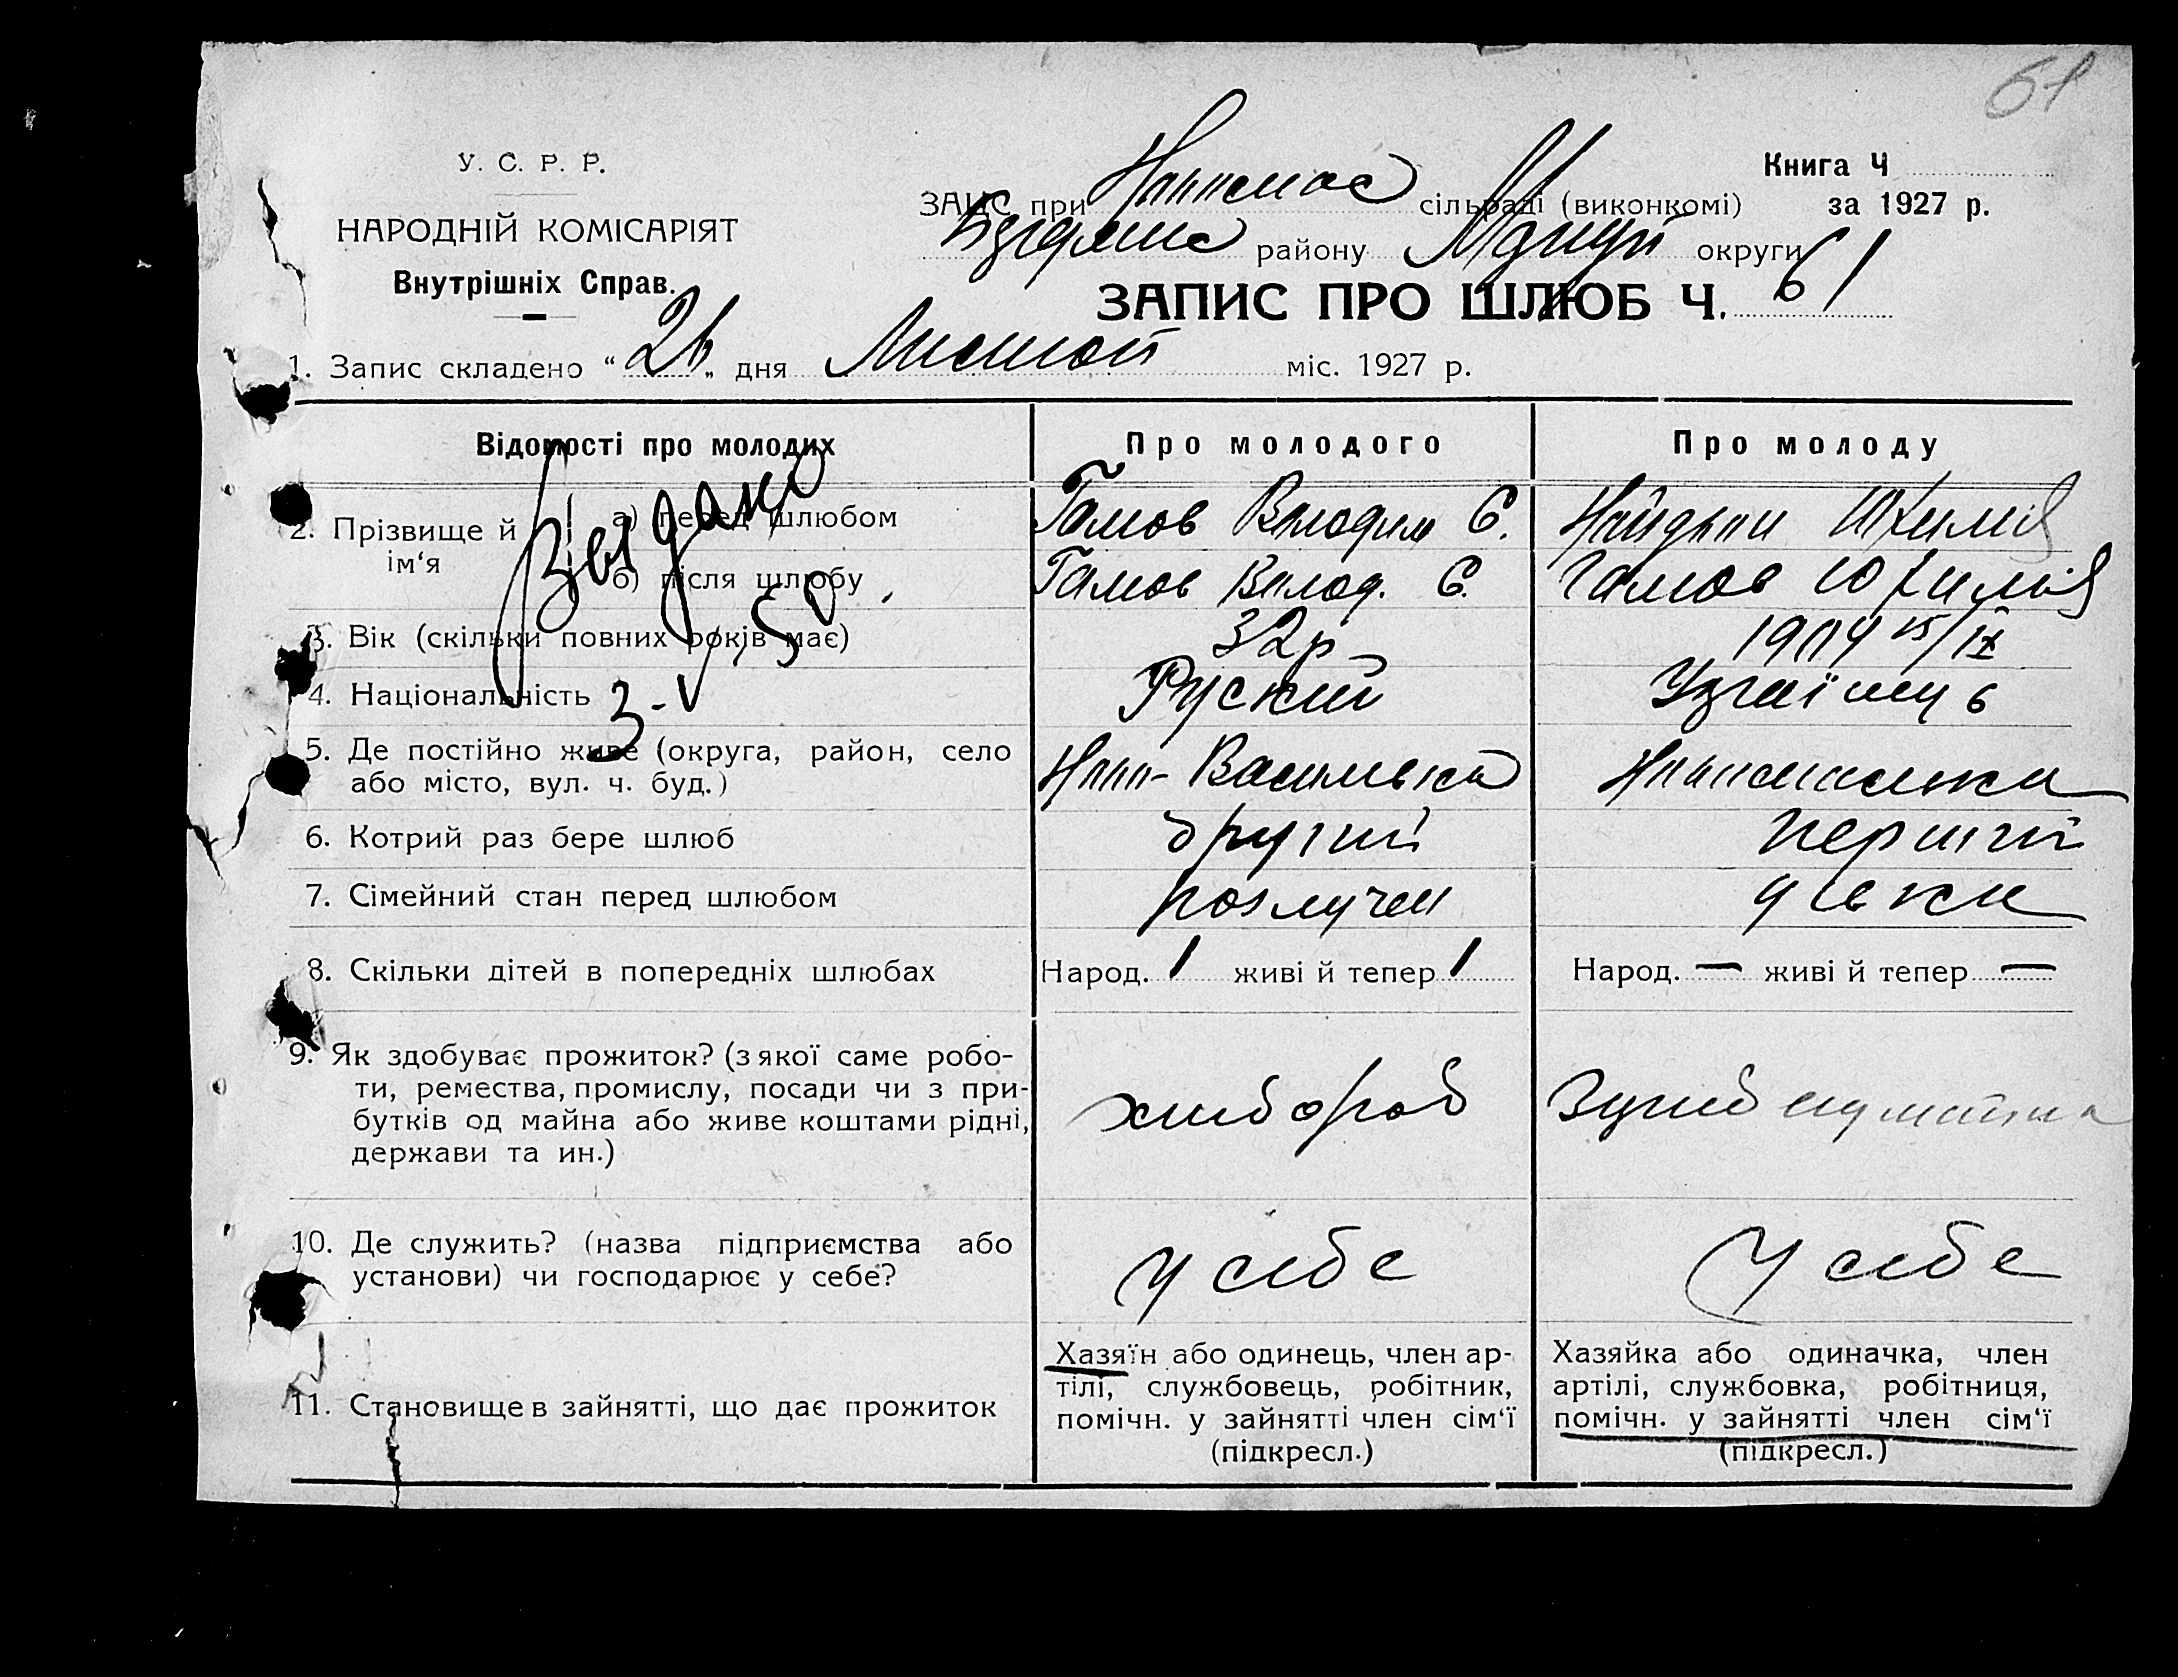 61
У. С. Р. Р.
НАРОДНІЙ КОМІСАРІЯТ
Внутрішніх Справ.
Книга Ч
ЗАПС при сільраді (виконкомі) за 1927 р.
району округи
ЗАПИС ПРО ШЛЮБ Ч. 61
1. Запис складено “ 26 „ дня Листоп міс. 1927 р.
Відомості про молодих Про молодого Про молоду
2. Прізвище й ім‘я
а) перед шлюбом Гамов Володим Є.
б) після шлюбу Гамов Волод. Є. Гамов Юхимія
Видано
3. Вік (скільки повних років має) 32р 1904 15/IX
4. Національність Руский
3-V 50
5. Де постійно живе (округа, район, село Васильївка
або місто, вул. ч. буд.)
6. Котрий раз бере шлюб другий перший
7. Сімейний стан перед шлюбом розлучен дівка
8. Скільки дітей в попередніх шлюбах Народ. 1 живі й тепер 1 Народ. — живі й тепер —
9. Як здобуває прожиток? (з якої саме робо-
ти, ремества, промислу, посади чи з при-
бутків од майна або живе коштами рідні,
держави та ин.)
хлібороб
10. Де служить? (назва підприємства або
установи) чи господарює у себе?
у себе у себе
11. Становище в зайнятті, що дає прожиток
Хазяїн або одинець, член ар-
тілі, службовець, робітник,
помічн. у зайнятті член сім‘ї
(підкресл.)
Хазяйка або одиначка, член
артілі, службовка, робітниця,
помічн. у зайнятті член сім‘ї
(підкресл.)